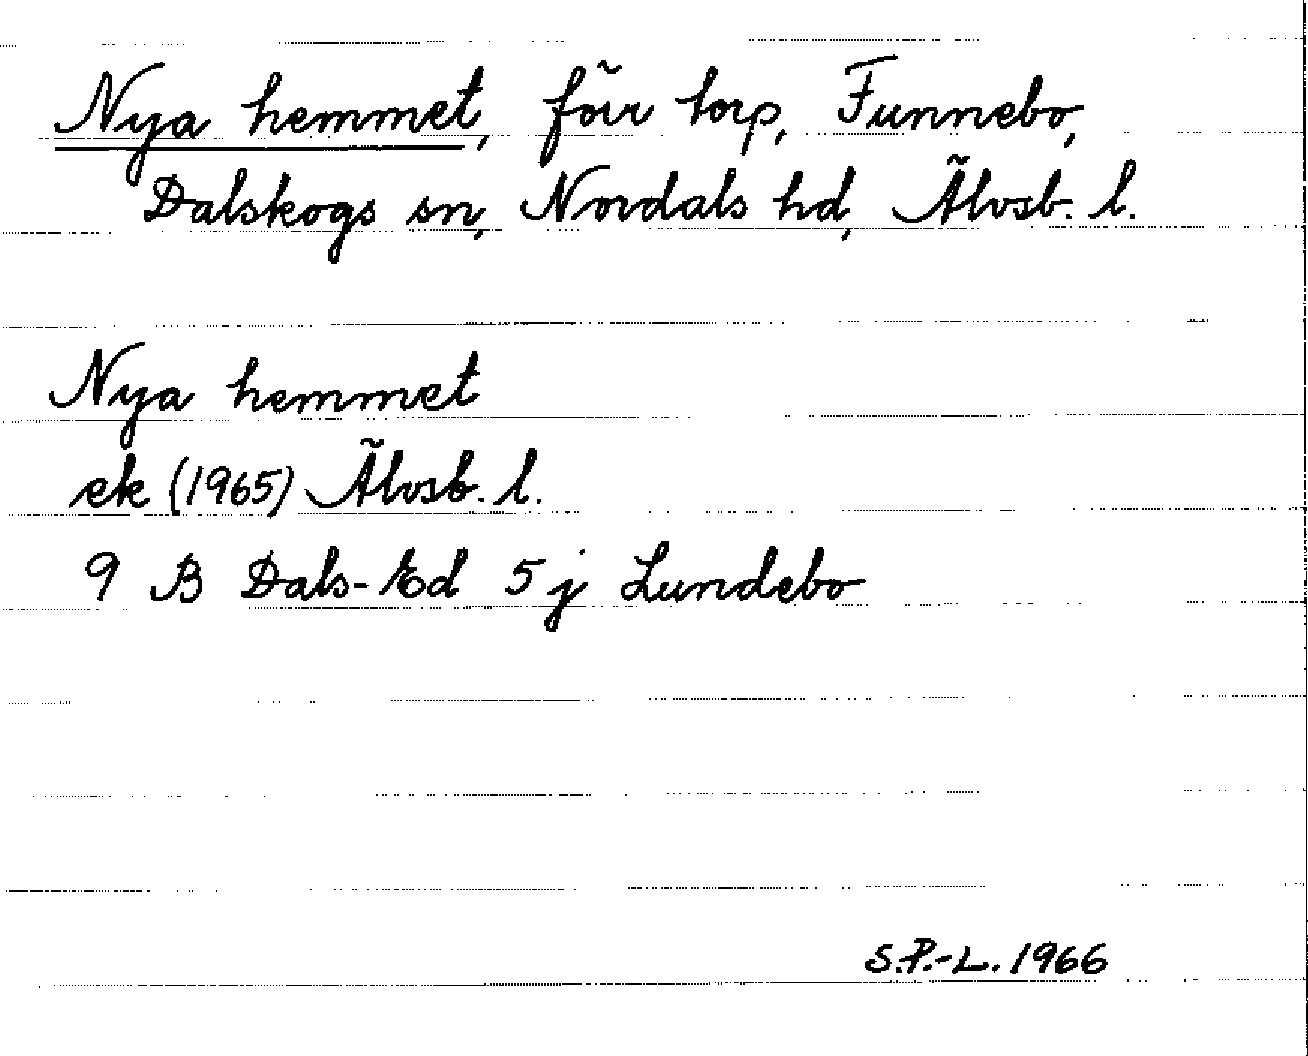 Nya hemmet, förr torp, Funnebo,
Dalskogs sn, Nordals hd, Älvsb. l.
Nya hemmet
ek (1965) Älvsb. l.
9 B Dals-Ed 5 j Lundebo
S.P.-L. 1966